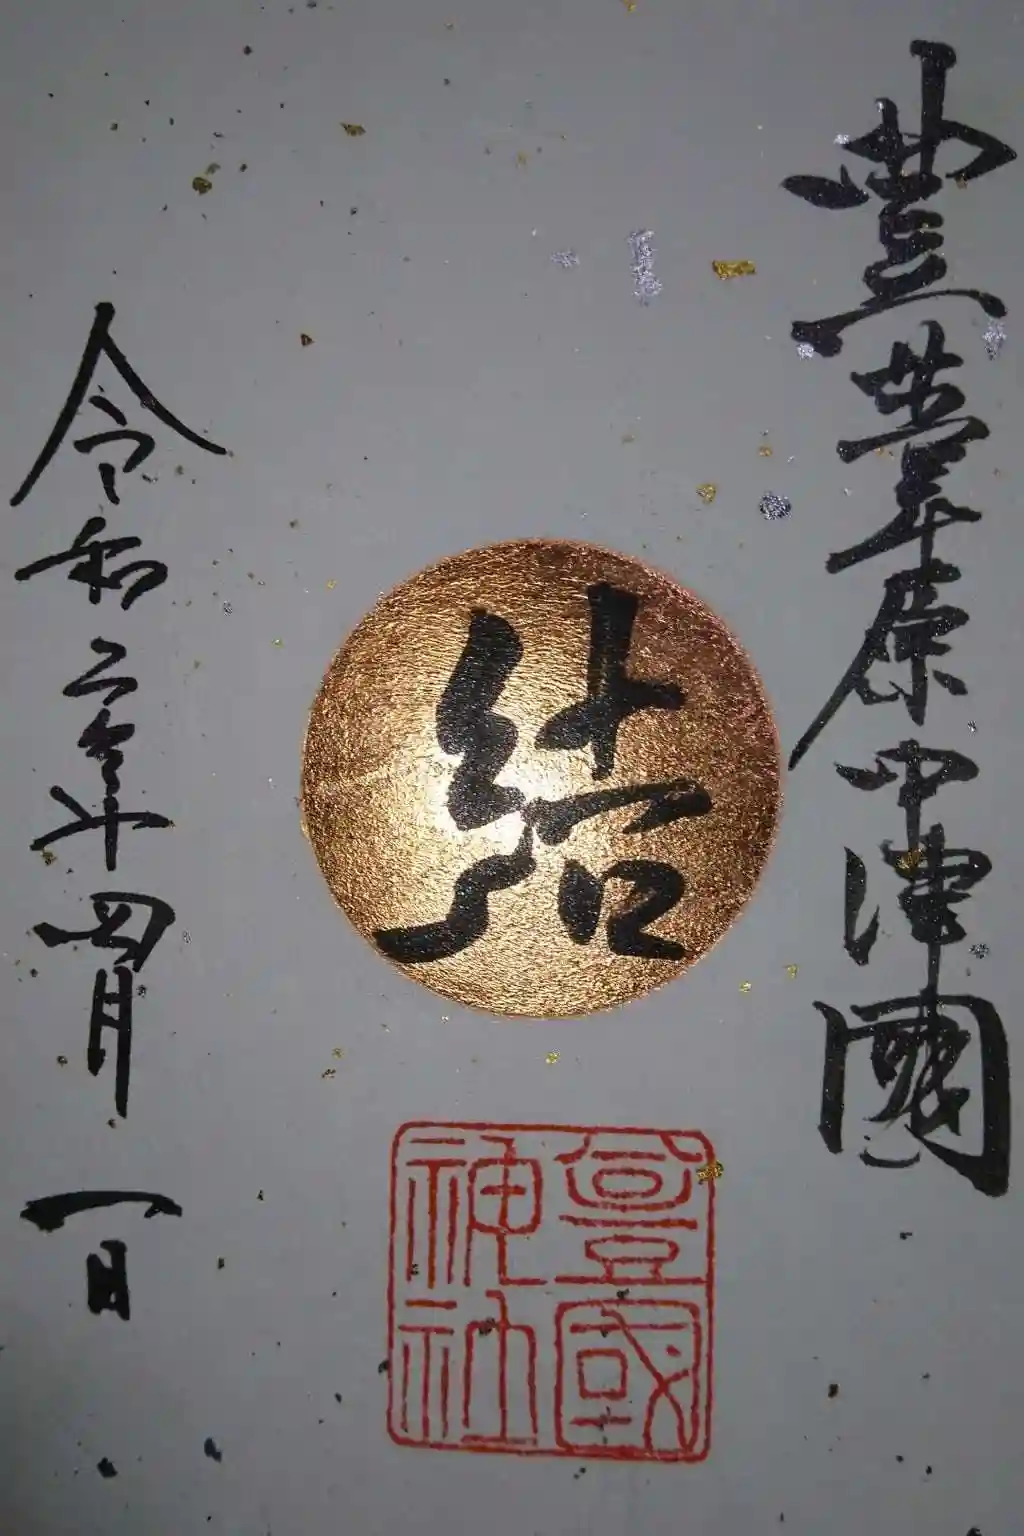 豐葦原中津國
結
豐國
神社
令和二年四月一日